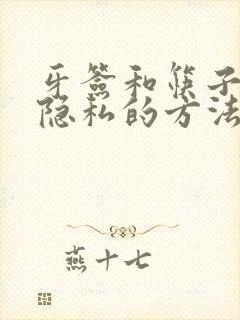 牙签和筷子
隐私的方法
燕十七